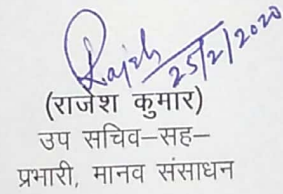 Rajesh
25/2/2020
(राजेश कुमार)
उप सचिव–सह–
प्रभारी, मानव संसाधन